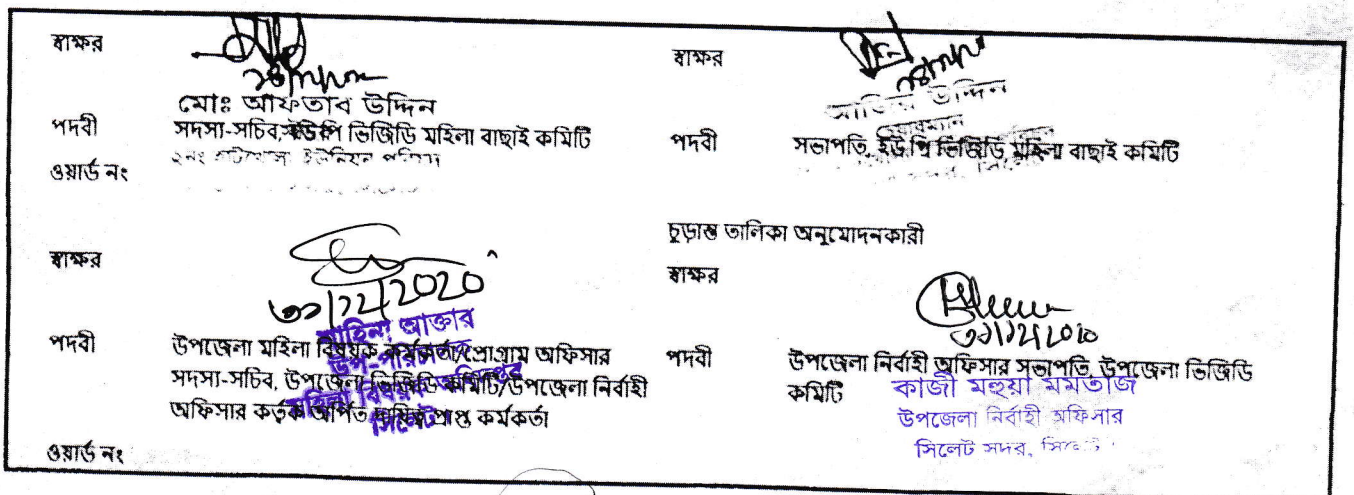 স্বাক্ষর
মোঃ আফতাব উদ্দিন
পদবী
সদস্য-সচিব, ইউপি ভিজিডি মহিলা বাছাই কমিটি
২নং ইউনিয়ন পরিষদ
ওয়ার্ড নং
স্বাক্ষর
উদ্দিন
চেয়ারম্যান
পদবী
সভাপতি, ইউ পি ভিজিডি মহিলা বাছাই কমিটি
স্বাক্ষর
৩১/১২/2020
আক্তার
উপ-পরিচালক
মহিলা বিষয়ক অধিদপ্তর
সিলেট
পদবী
উপজেলা মহিলা বিষয়ক কর্মকর্তা/প্রোগ্রাম অফিসার
সদস্য-সচিব, উপজেলা ভিজিডি কমিটি/উপজেলা নির্বাহী
অফিসার কর্তৃক অর্পিত দায়িত্ব প্রাপ্ত কর্মকর্তা
ওয়ার্ড নং
চুড়ান্ত তালিকা অনুমোদনকারী
স্বাক্ষর
৩১/১২/2020
পদবী
উপজেলা নির্বাহী অফিসার সভাপতি, উপজেলা ভিজিডি
কমিটি
কাজী মহুয়া মমতাজ
উপজেলা নির্বাহী অফিসার
সিলেট সদর, সিলেট